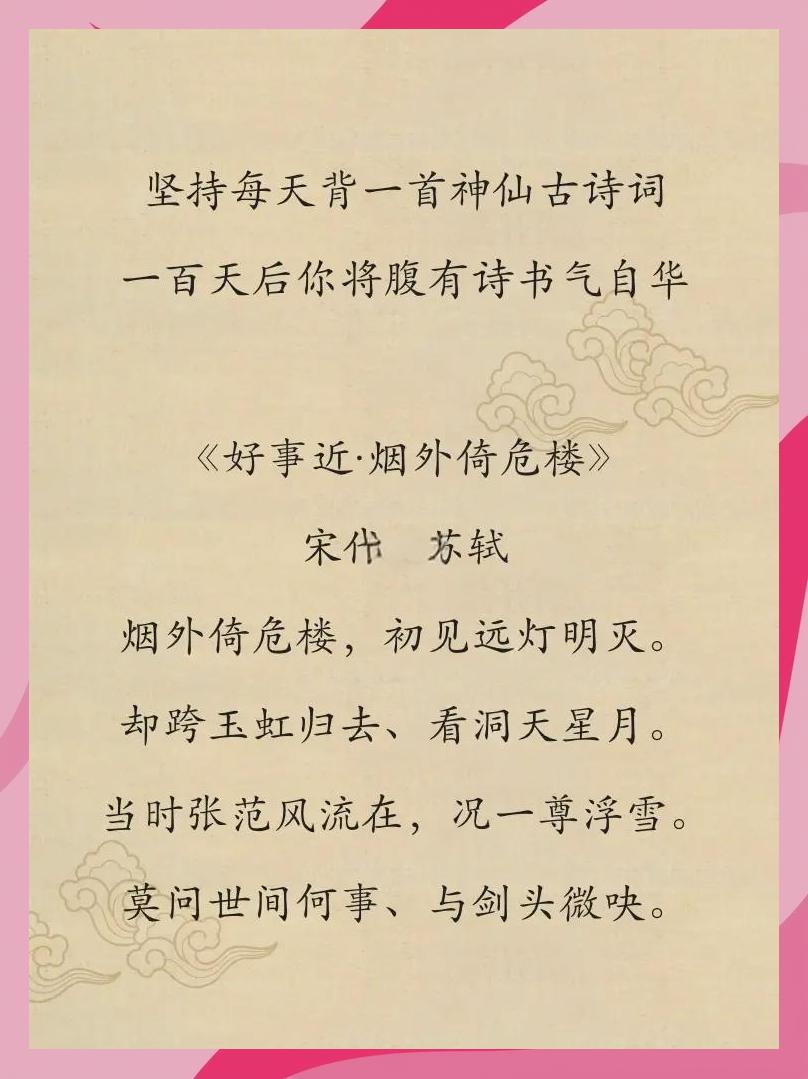 坚持每天背一首神仙古诗词
一百天后你将腹有诗书气自华
《好事近·烟外倚危楼》
宋代 苏轼
烟外倚危楼，初见远灯明灭。
却跨玉虹归去、看洞天星月。
当时张范风流在，况一尊浮雪。
莫问世间何事、与剑头微吷。